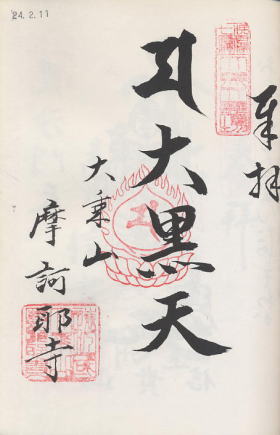 奉拝
大黒天
大乗山
摩訶耶寺
'24. 2. 11